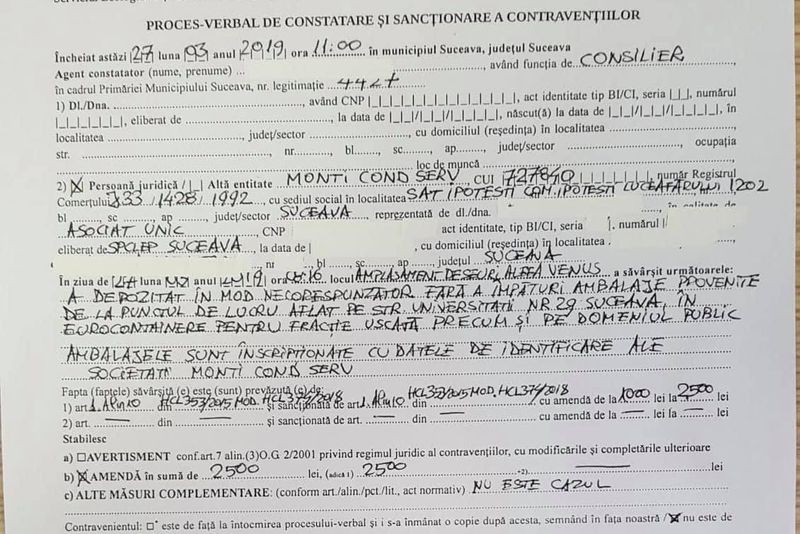 PROCES-VERBAL DE CONSTATARE ȘI SANCȚIONARE A CONTRAVENȚIILOR
Încheiat astăzi |27| luna |03| anul |2019| ora 11:00 în municipiul Suceava, județul Suceava
Agent constatator (nume, prenume) ..., având funcția de CONSILIER
în cadrul Primăriei Municipiului Suceava, nr. legitimație
1) Dl./Dna. ..., având CNP |_|_|_|_|_|_|_|_|_|_|_|_|_|, act identitate tip BI/CI, seria |_|_|, numărul
|_|_|_|_|_|_|, eliberat de ... la data de |_|_|/|_|_|/|_|_|_|_|, născut(ă) la data de |_|_|/|_|_|/|_|_|_|_|, în
localitatea ..., județ/sector ..., cu domiciliul (reședința) în localitatea ...,
str. ... nr. ..., bl. ..., sc. ..., ap. ..., județul/sector ..., ocupația
... loc de muncă ...
2) |X| Persoană juridică / |_| Altă entitate MONTI COND SERV, CUI |727840|_|_|_|_|, număr Registrul
Comerțului J33/1428/1992, cu sediul social în localitatea SAT IPOTESTI COM. IPOTESTI LUCEAFĂRULUI 1202
bl ..., sc ..., ap ..., județ/sector SUCEAVA, reprezentată de dl./dna. ..., în calitate de
ASOCIAT UNIC, CNP act identitate, tip BI/CI, seria numărul
eliberat de SPCLEP SUCEAVA, la data de , cu domiciliul (reședința) în localitatea
nr. bl. sc. ap. județul SUCEAVA
În ziua de luna anul ora locul AMPLASAMENT DESEURI ALEEA VENUS a săvârșit următoarele:
A DEPOZITAT ÎN MOD NECORESPUNZATOR FĂRĂ A IMPĂTURI AMBALAJE PROVENITE
DE LA PUNCTUL DE LUCRU AFLAT PE STR. UNIVERSITATII NR. 29 SUCEAVA, ÎN
EUROCONTAINERE PENTRU FRACTIE USCATĂ PRECUM ȘI PE DOMENIUL PUBLIC
AMBALAJELE SUNT ÎNSCRIPTIONATE CU DATELE DE IDENTIFICARE ALE
SOCIETATII MONTI COND SERV
Fapta (faptele) săvârșită (e) este (sunt) prevăzută (e) de:
1) art. din HCL 353/2015 MOD. HCL 374/2018 și sancționată de art. din HCL 353/2015 MOD. HCL 374/2018 cu amendă de la 1000 lei la 2500 lei
2) art. — din — și sancționată de art. — din — cu amendă de la — lei la — lei
Stabilesc
a) □AVERTISMENT conf.art.7 alin.(3)O.G 2/2001 privind regimul juridic al contravențiilor, cu modificările și completările ulterioare
b) ☒AMENDĂ în sumă de 2500 lei, (adică 1) 2500 +2) — lei
c) ALTE MĂSURI COMPLEMENTARE: (conform art./alin./pct./lit., act normativ) NU ESTE CAZUL
Contravenientul: □* este de față la întocmirea procesului-verbal și i s-a înmânat o copie după acesta, semnând în fața noastră / ☒ nu este de